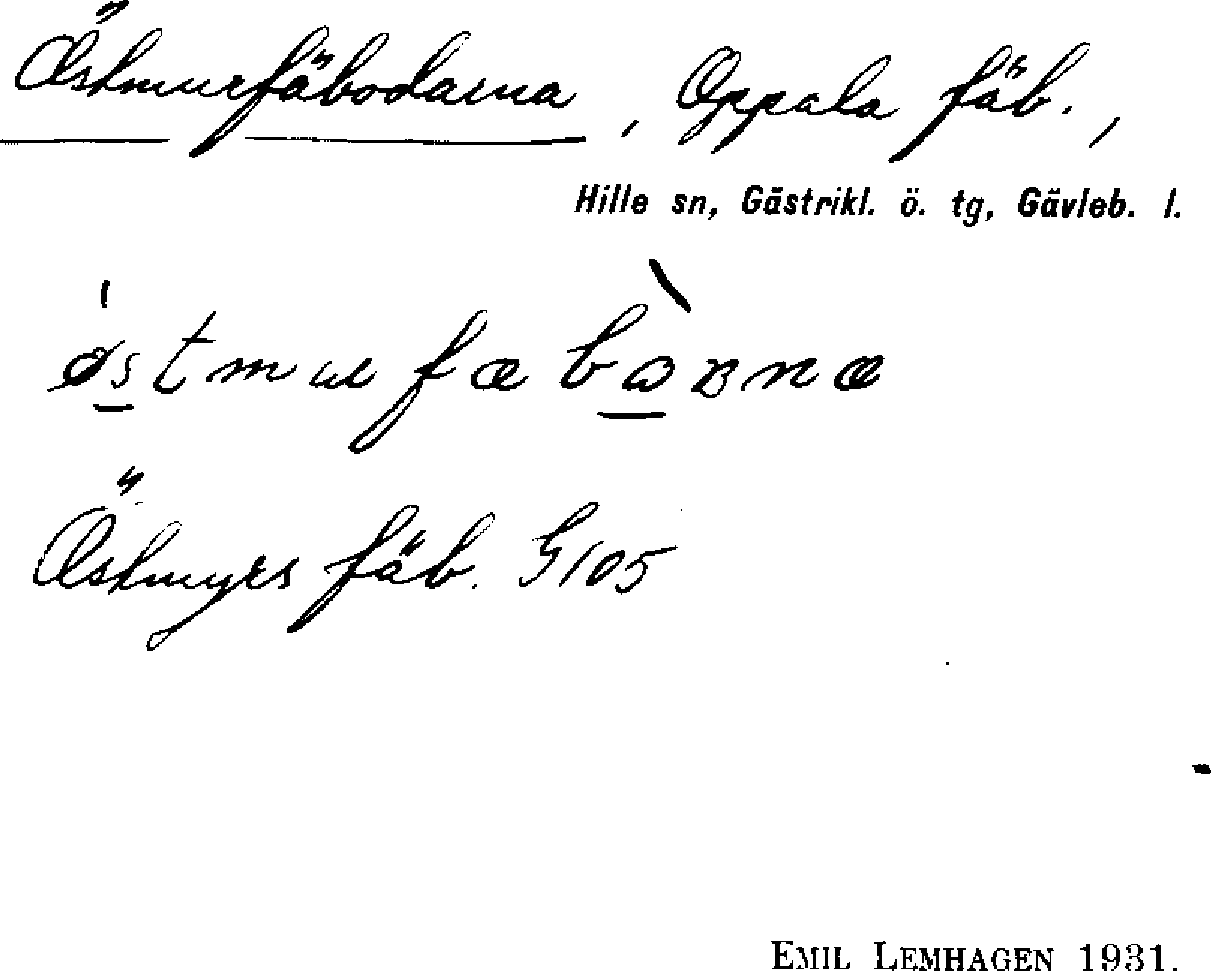 Östmurfäbodarna, Oppala fäb.,
Hille sn, Gästrikl. ö. tg, Gävleb. l.
Östmyrs fäb. G105
EMIL LEMHAGEN 1931.